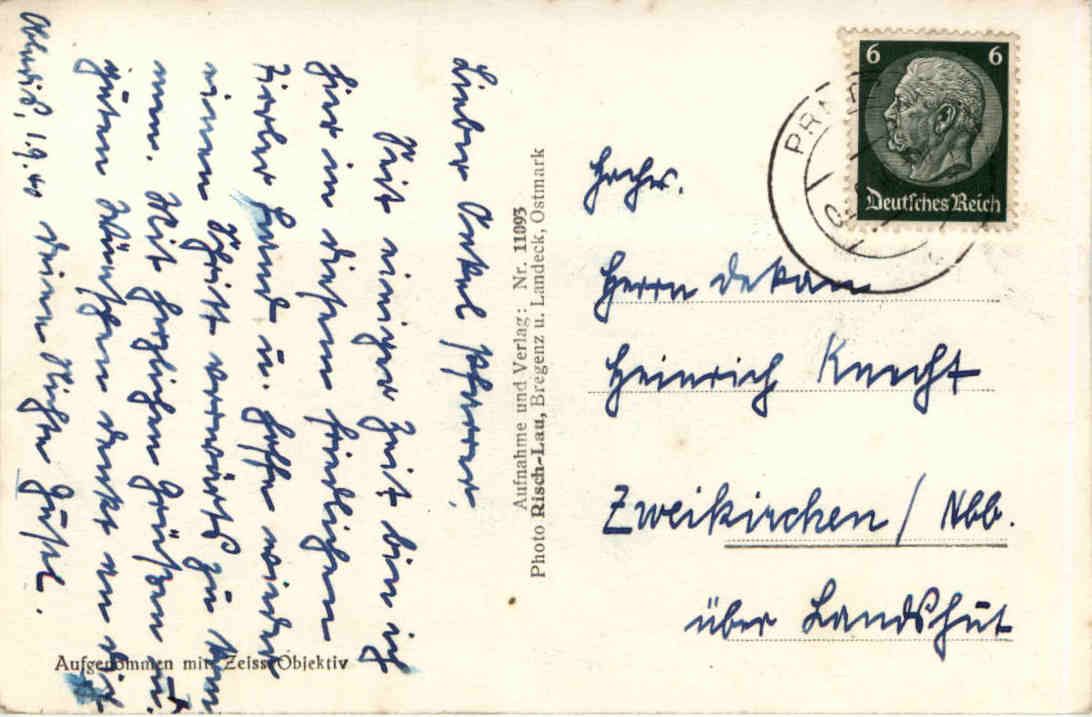 Lieber Onkel Pfarrer,
Seit einiger Zeit bin ich
hier in diesem friedlichen
Tiroler Land u. hoffe wieder
einen Schritt vorwärts zu kom
men. Mit herzlichen Grüßen u.
guten Wünschen denkt an Dich
deine Nichte Gustl.
Obladis, 1.9.40
Aufgenommen mit Zeiss Objektiv
Aufnahme und Verlag: Nr. 11093
Photo Risch-Lau, Bregenz u. Landeck, Ostmark
6 6
Deutsches Reich
Hochw.
Herrn Dekan
Heinrich Knecht
Zweikirchen / Nbb.
über Landshut